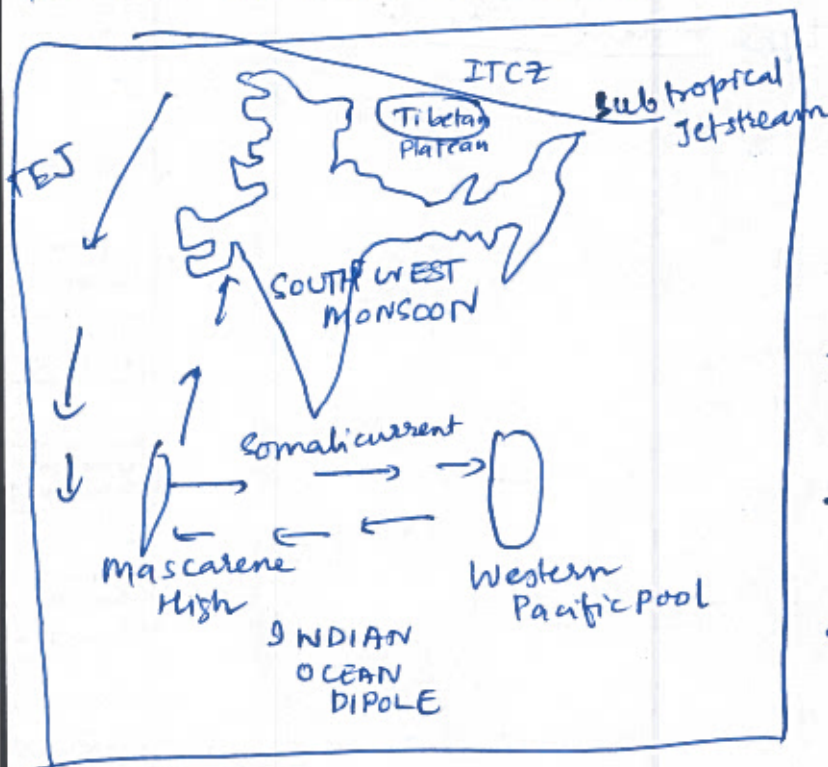 ITCZ
Subtropical
Jetstream
Tibetan
Plateau
TEJ
SOUTH WEST
MONSOON
Somali current
Mascarene
High
Western
Pacific pool
INDIAN
OCEAN
DIPOLE